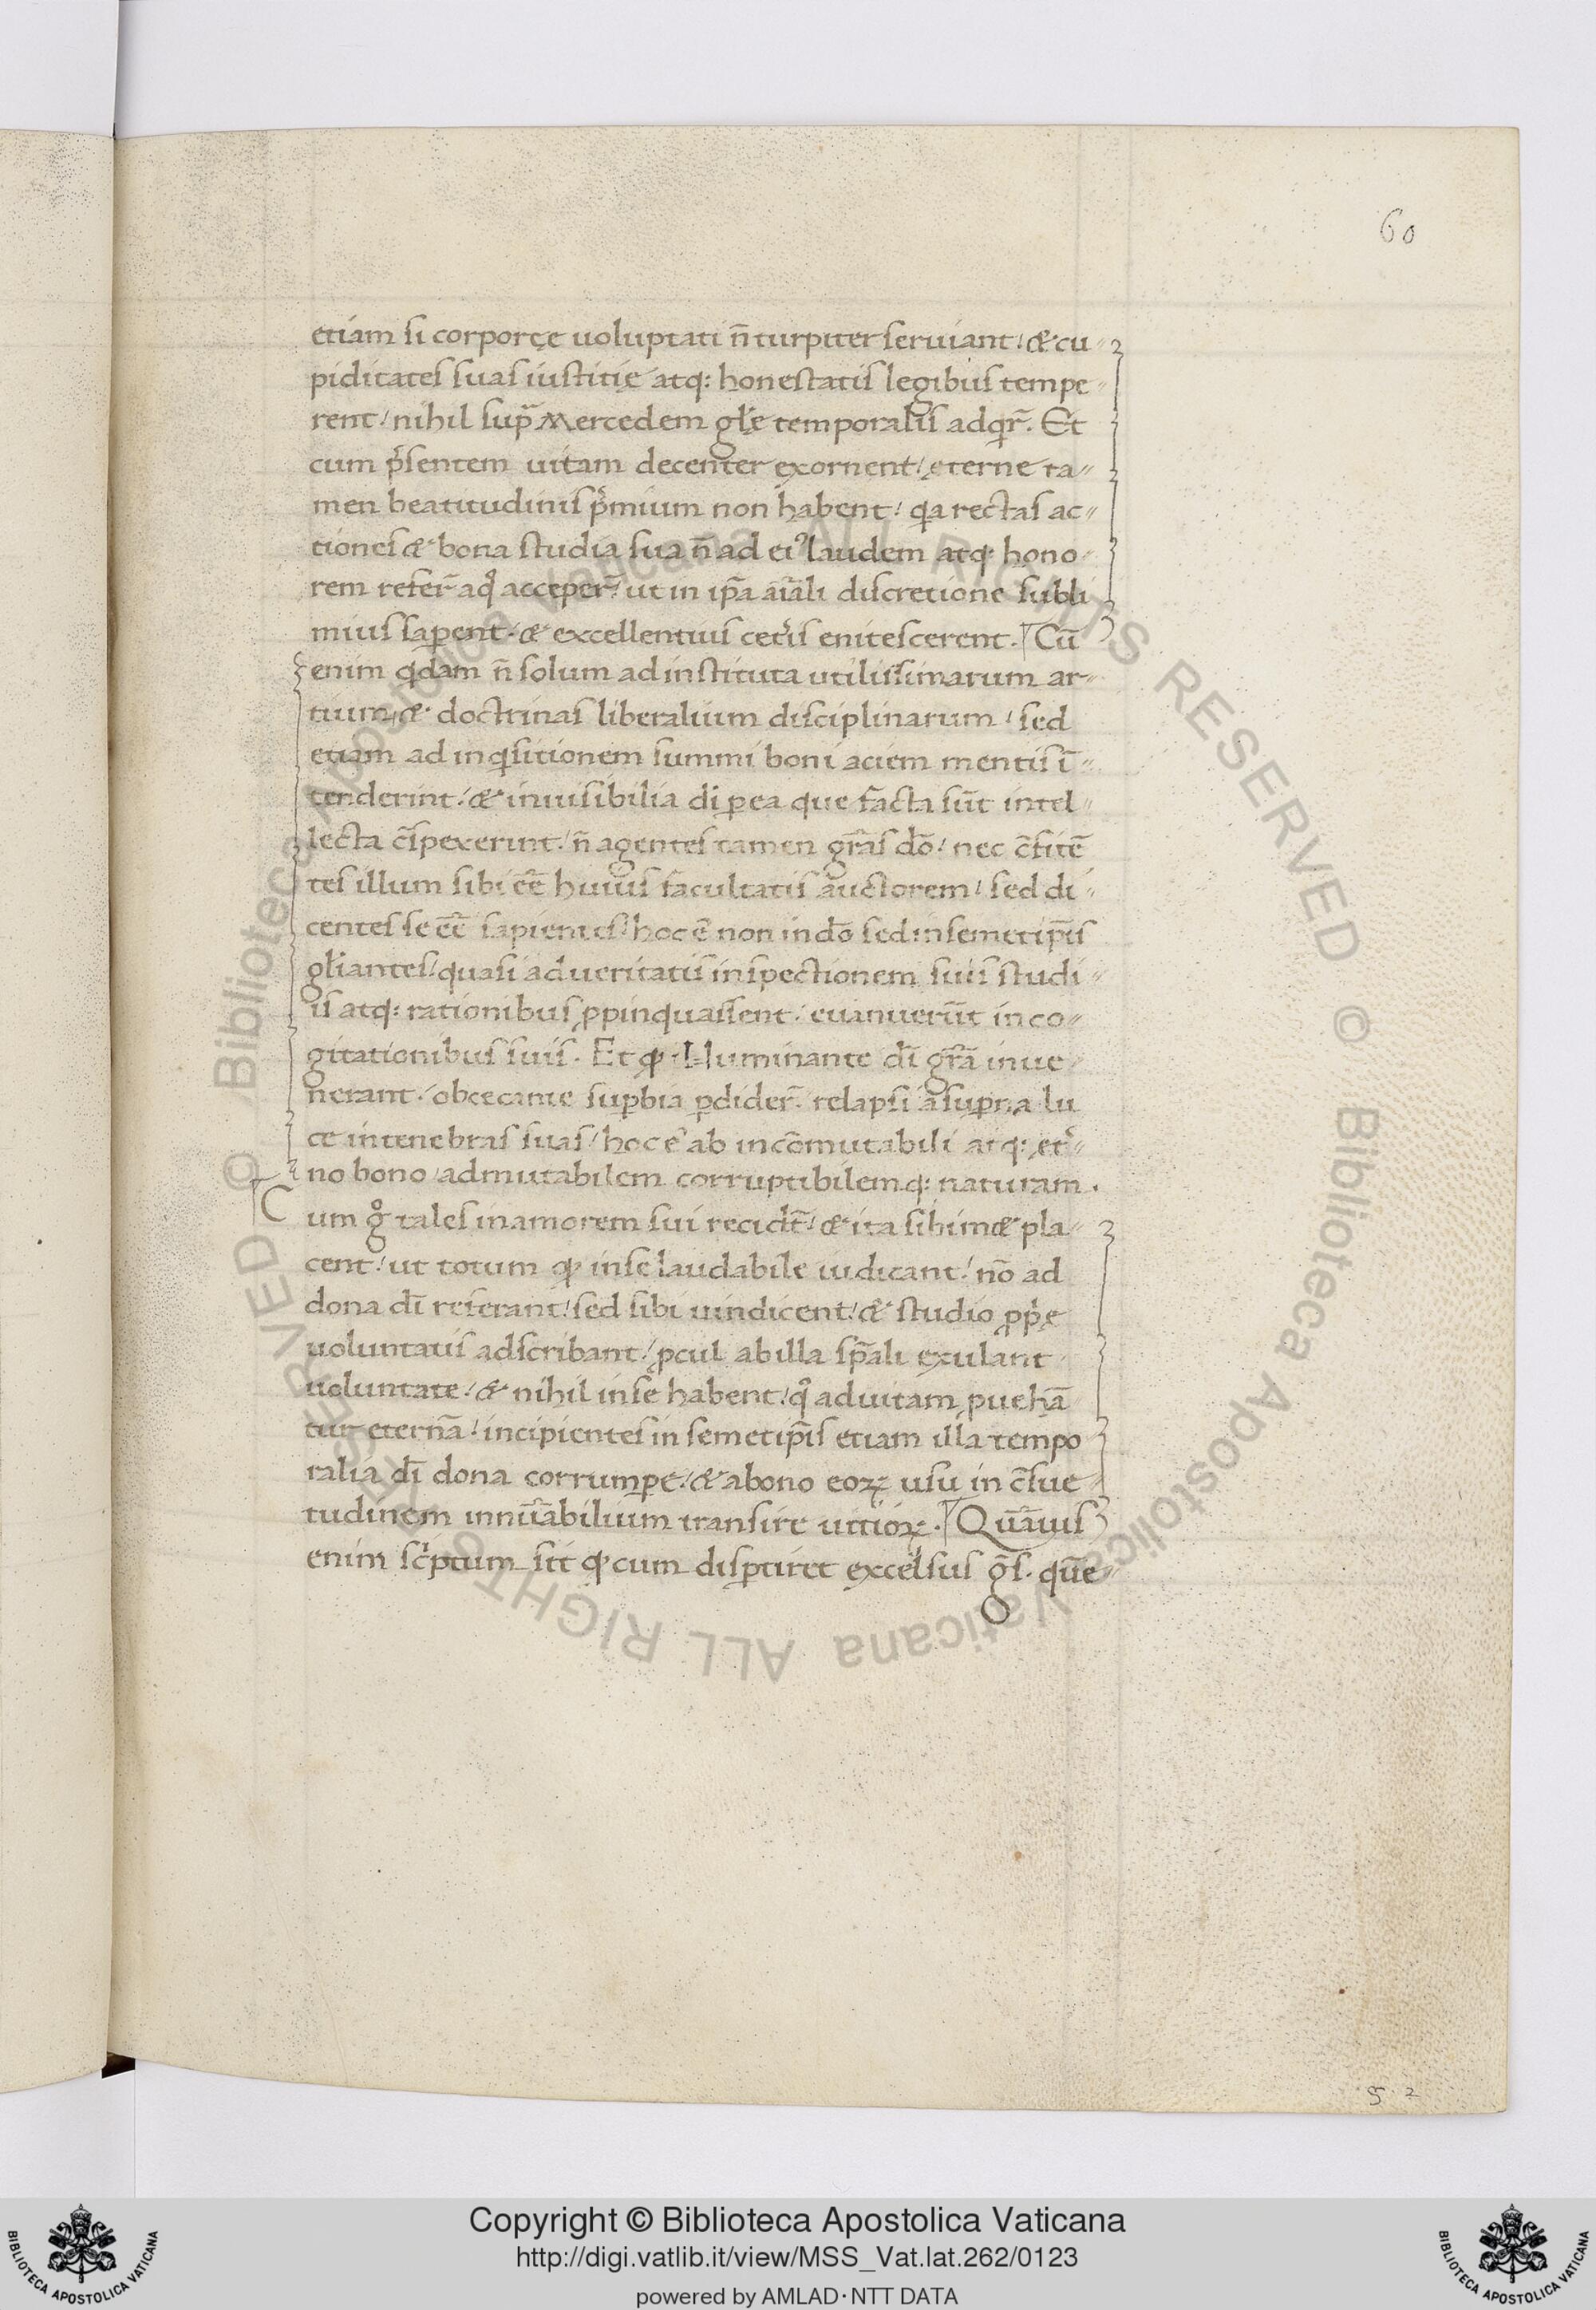 60
etiam si corporęe uoluptati n̄ turpiter seruiant / & cu-
piditates suas iustitię atq: honestatis legibus tempe-
rent / nihil sup̄ Mercedem gl̄ę temporalis adqr̄. Et
cum p̄sentem uitam decenter exornent / ęterne ta-
men beatitudinis p̄mium non habent / qa rectas ac-
tiones & bona studia sua n̄ ad ei⁹ laudem atq: hono-
rem refer̄ aqͦ acceper̄ / ut in ip̄a aīali discretione subli
mius saperent / & excellentius cet̄is enitescerent. Cū
enim qdam n̄ solum ad instituta utilissimarum ar-
tium / & doctrinas liberalium disciplinarum / sed
etiam ad inqsitionem summi boni aciem mentis ī-
tenderint / & inuisibilia dī per ea que facta sūt intel-
lecta c̄spexerint / n̄ agentes tamen gr̄as dō / nec c̄fitē
tes illum sibi eē huius facultatis auctorem / sed di-
centes se eē sapientes / hoc ē non in dō sed in semetip̄is
gl̄iantes / quasi ad ueritatis inspectionem suis studi-
is atq: rationibus ꝓpinquassent / euanuerūt in co-
gitationibus suis. Et ꝙ Illuminante dī gr̄a inue-
nerant / obcecante supbia pdider̄. relapsi a supna lu
ce in tenebras suas / hoc ē ab incōmutabili atq: et̄-
no bono / ad mutabilem corruptibilemq: naturam.
Cum gͦ tales in amorem sui recidt̄ / & ita sibimet pla-
cent / ut totum ꝙ in se laudabile iudicant / nō ad
dona dī referant / sed sibi uindicent / & studio ꝓp̄ę
uoluntatis adscribant / ꝓcul ab illa sp̄ali exulant
uoluntate / & nihil in se habent / qͦ ad uitam ꝓuehā-
tur eternā / incipientes in semetip̄is etiam illa tempo
ralia dī dona corrumpe / & a bono eoꝝ usu in c̄sue-
tudinem innūabilium transire uitioꝝ. Quāuis
enim sc̄ptum sit ꝙ cum disptiret excelsus gs̄. quē-
5 2
Copyright © Biblioteca Apostolica Vaticana
http://digi.vatlib.it/view/MSS_Vat.lat.262/0123
powered by AMLAD·NTT DATA
BIBLIOTECA APOSTOLICA VATICANA
BIBLIOTECA APOSTOLICA VATICANA
© Biblioteca Apostolica Vaticana ALL RIGHTS RESERVED © Biblioteca Apostolica Vaticana ALL RIGHTS RESERVED